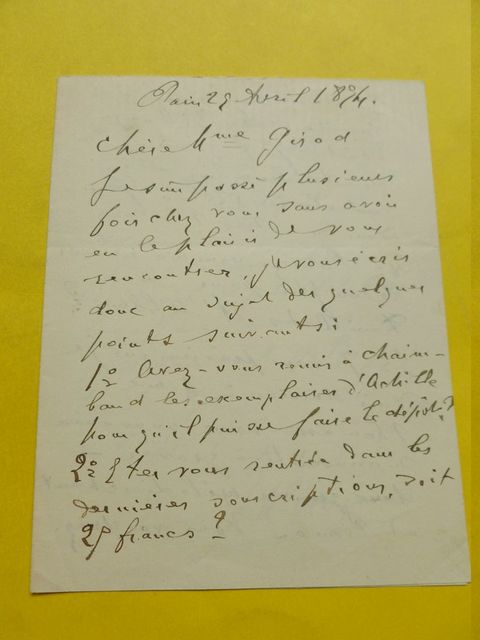 Paris 29 Avril 1894.
Chère Mme Girod
Je suis passé plusieurs
fois chez vous sans avoir
eu le plaisir de vous
rencontrer, je vous écris
donc au sujet des quelques
points suivants:
1º Avez-vous remis à Chaim-
baud les exemplaires d'Achille
pour qu'il puisse faire le dépôt?
2º Etes vous rentrée dans les
dernières souscriptions, soit
25 francs?